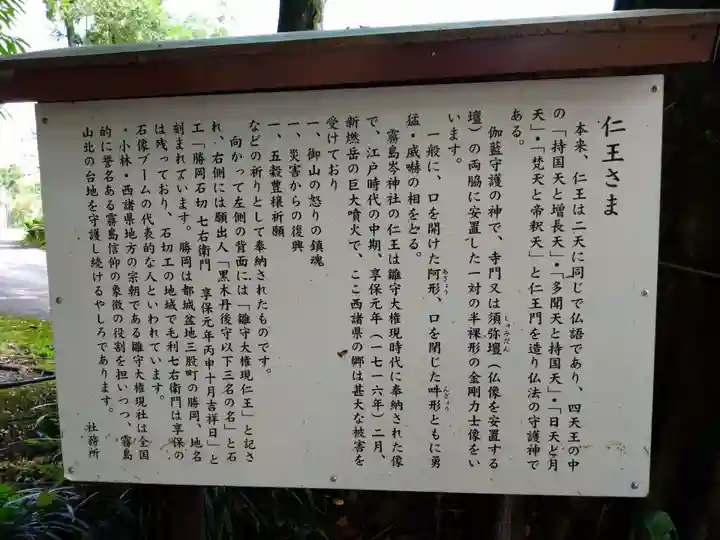 仁王さま
本来、仁王は二天に同じで仏語であり、四天王の中
の「持国天と増長天」・「多聞天と持国天」・「日天と月
天」・「梵天と帝釈天」と仁王門を造り仏法の守護神で
ある。
伽藍守護の神で、寺門又は須弥壇（仏像を安置する
しゅみだん
壇）の両脇に安置した一対の半裸形の金剛力士像をい
います。
一般に、口を開けた阿形、口を閉じた吽形ともに勇
あぎょう
んぎょう
猛・威嚇の相をとる。
霧島岑神社の仁王は雛守大権現時代に奉納された像
で、江戸時代の中期、享保元年（一七十六年）二月、
新燃岳の巨大噴火で、ここ西諸県の郷は甚大な被害を
受けており
一、御山の怒りの鎮魂
一、災害からの復興
一、五穀豊穣祈願
などの祈りとして奉納されたものです。
向かって左側の背面には「雛守大権現仁王」と記さ
れ、右側には願出人「黒木丹後守以下三名の名」と石
工「勝岡石切 七右衛門 享保元年丙申十月吉祥日」と
刻まれています。勝岡は都城盆地三股町の勝岡、地名
は残っており、石切工の地域で毛利七右衛門は享保の
石像ブームの代表的な人といわれています。
・小林・西諸県地方の宗朝である雛守大権現社は全国
的に誉名ある霧島信仰の象徴の役割を担いつつ、霧島
山北の台地を守護し続けるやしろであります。
社務所